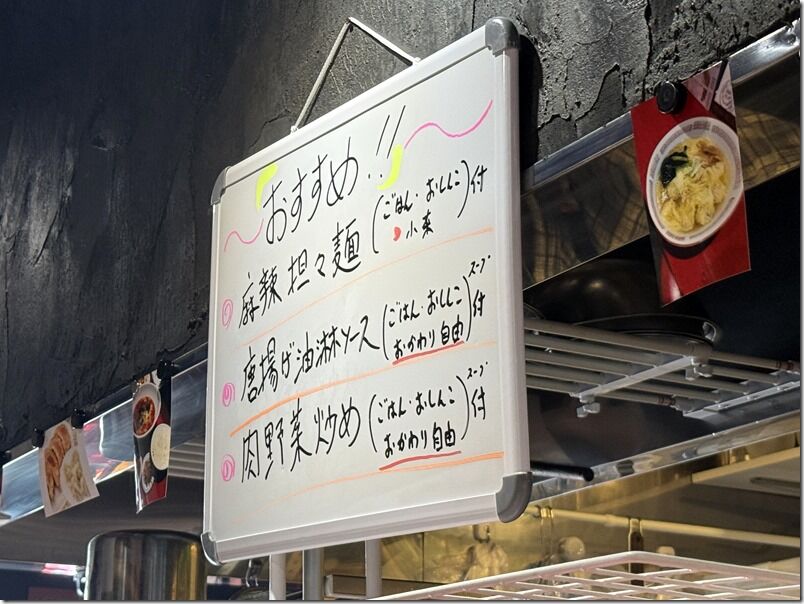 おすすめ!!
① 麻辣担々麺 (ごはん・おしんこ・小菜)付
② 唐揚げ油淋ソース (ごはん・おしんこ おかわり自由) スープ付
③ 肉野菜炒め (ごはん・おしんこ おかわり自由) スープ付